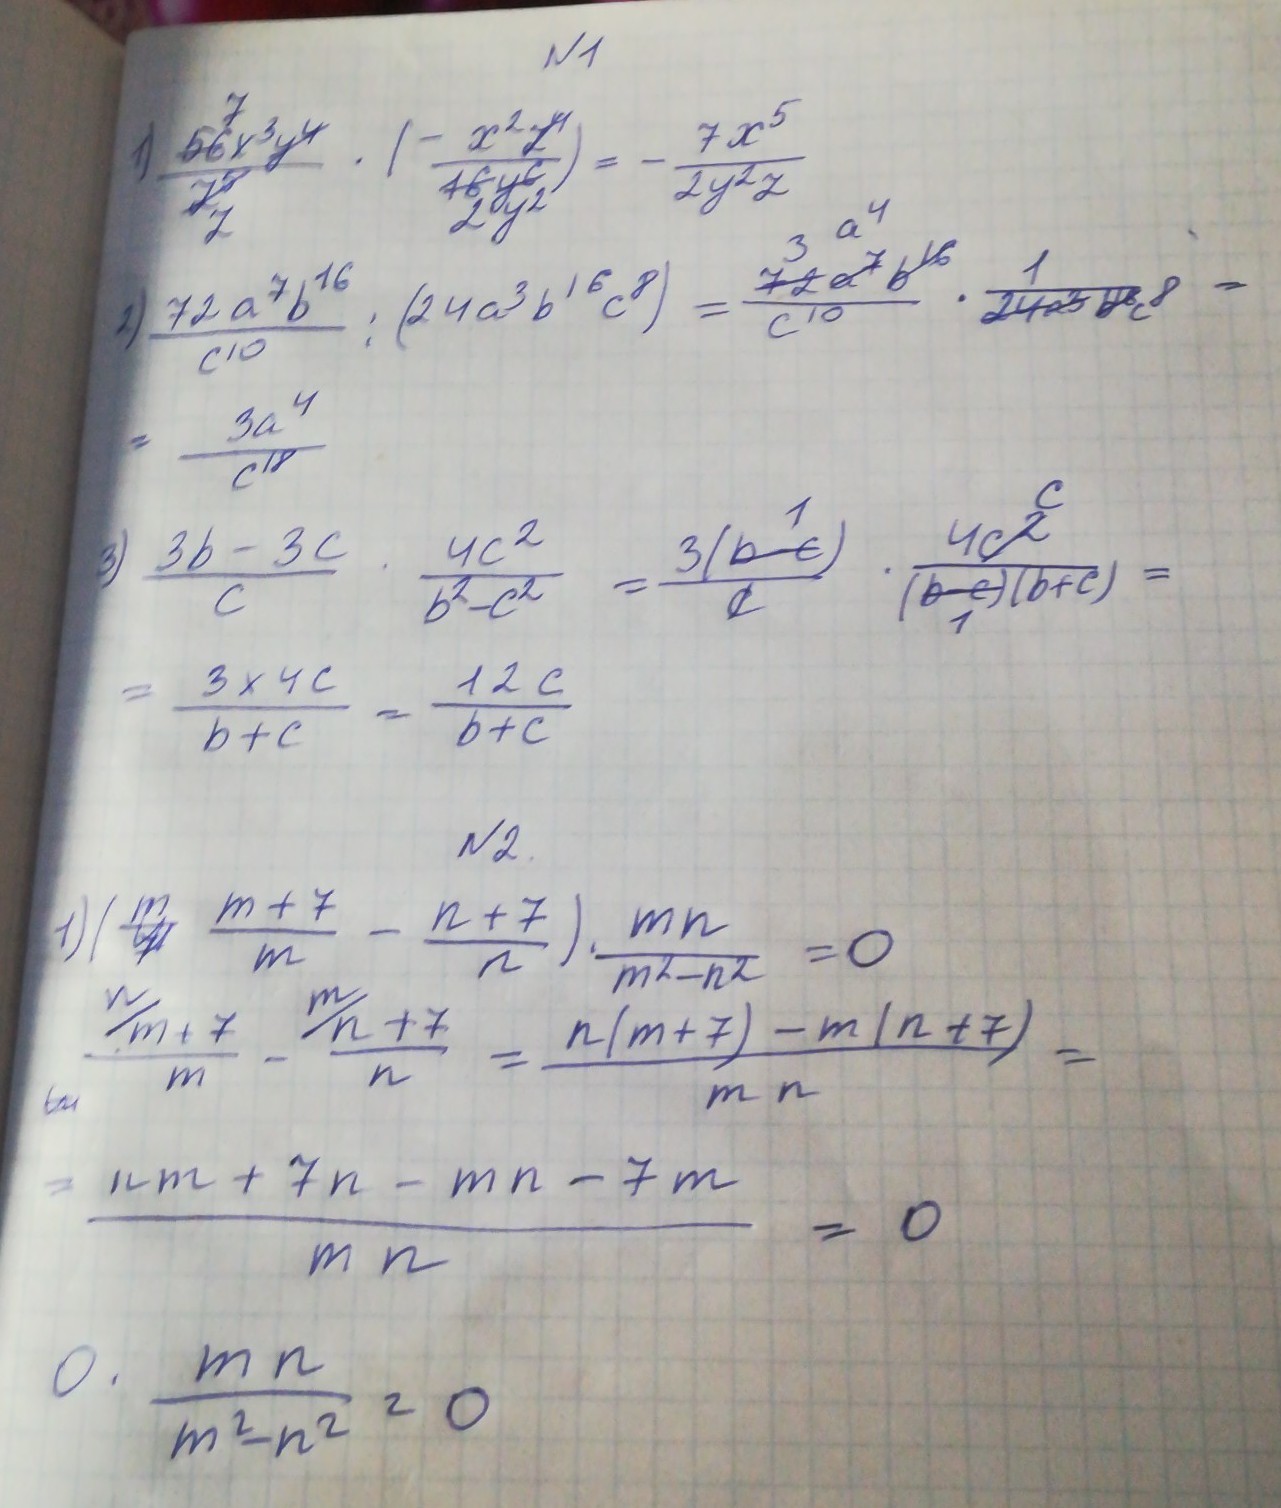 N1
1) 56x³y⁴/z⁵ · (− x²z⁴/16y⁶) = − 7x⁵/2y²z
2) 72a⁷b¹⁶/c¹⁰ : (24a³b¹⁶c⁸) = 72a⁷b¹⁶/c¹⁰ · 1/24a³b¹⁶c⁸ =
= 3a⁴/c¹⁸
3) 3b − 3c/c · 4c²/b²−c² = 3(b−c)/c · 4c²/(b−c)(b+c) =
= 3×4c/b+c = 12c/b+c
N2.
1) ( m+7/m − n+7/n ) · mn/m²−n² = 0
n/ m+7/m − m/ n+7/n = n(m+7) − m(n+7)/mn =
= nm + 7n − mn − 7m/mn = 0
0 · mn/m²−n² = 0